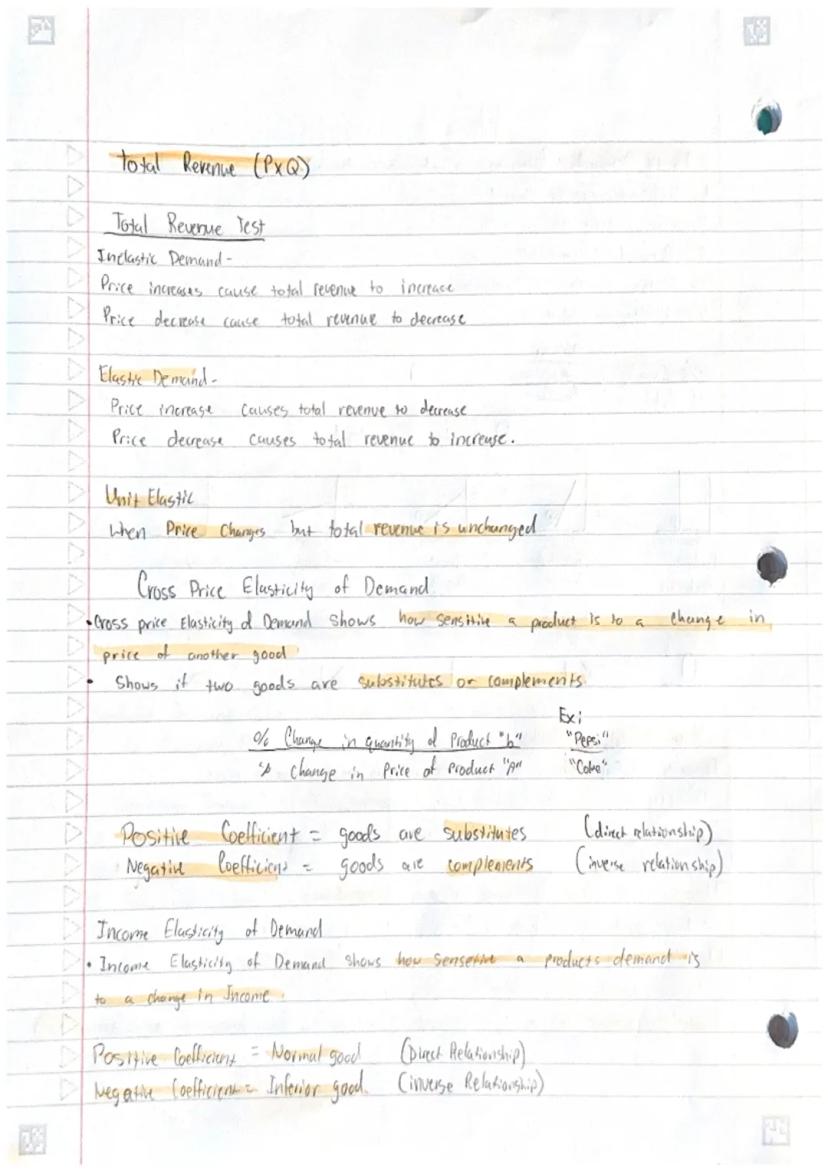 Total Revenue (PxQ)
Total Revenue Test
Inelastic Demand -
Price increases cause total revenue to increace
Price decrease cause total revenue to decrease
Elastic Demand -
Price increase causes total revenue to decrease
Price decrease causes total revenue to increase.
Unit Elastic
When Price Changes but total revenue is unchanged
Cross Price Elasticity of Demand
• Cross price Elasticity of Demand shows how sensitive a product is to a change in
price of another good
• Shows if two goods are substitutes or complements
Ex:
% Change in quantity of Product "b" "Pepsi"
% change in Price of Product "A" "Coke"
Positive Coefficient = goods are substitutes (direct relationship)
Negative Coefficient = goods are complements (inverse relationship)
Income Elasticity of Demand
• Income Elasticity of Demand shows how sensetive a products demand is
to a change in Income.
Positive Coefficient = Normal good (Direct Relationship)
Negative Coefficient = Inferior good. (inverse Relationship)